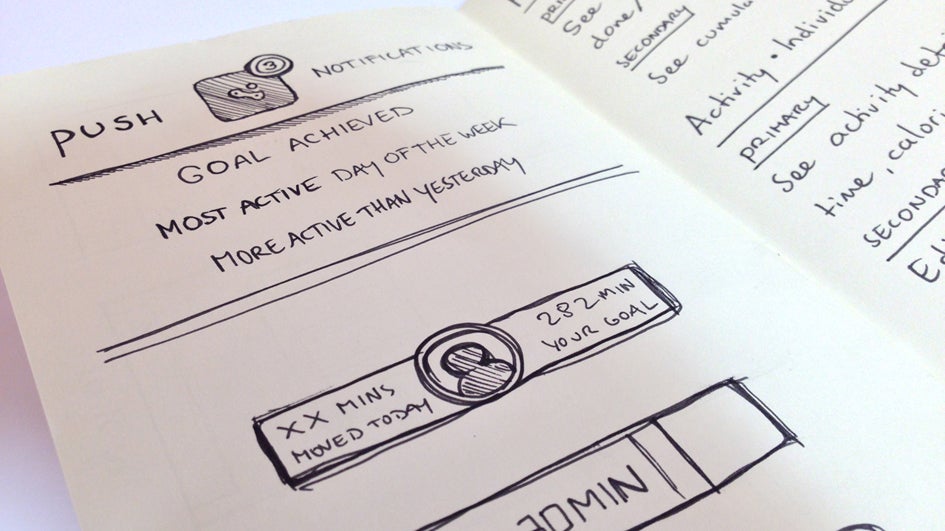 PUSH 3 NOTIFICATIONS
GOAL ACHIEVED
MOST ACTIVE DAY OF THE WEEK
MORE ACTIVE THAN YESTERDAY
XX MINS
MOVED TODAY
282 MIN
YOUR GOAL
See
done/
SECONDARY
See cumula
Activity • Individ
PRIMARY
See activity det
time, calori
SECONDAR
Ed